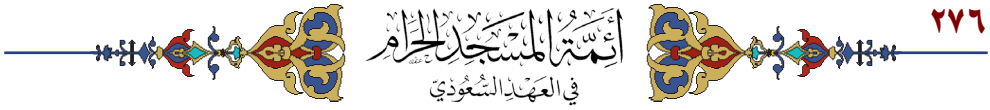 ٢٧٦
أَئِمَّةُ المَسْجِدِ الحَرَامِ
فِي العَهْدِ السُّعُودِيّ